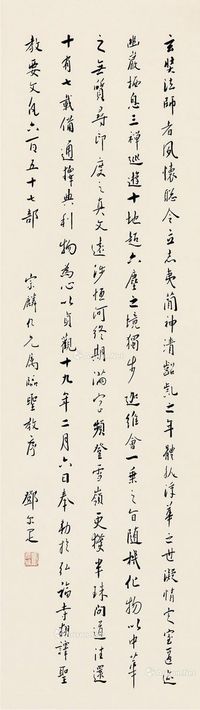 玄奘法師者夙懷聰令立志夷簡神清齠齔之年體拔浮華之世凝情定室匿迹
幽巖栖息三禪巡遊十地超六塵之境獨步迦維會一乘之旨隨機化物以中華
之無質尋印度之真文遠涉恒河終期滿字頻登雪嶺更獲半珠問道往還
十有七載備通釋典利物為心以貞觀十九年二月六日奉勅於弘福寺翻譯聖
教要文凡六百五十七部
宗麟九兄屬臨聖教序 鄧尔疋